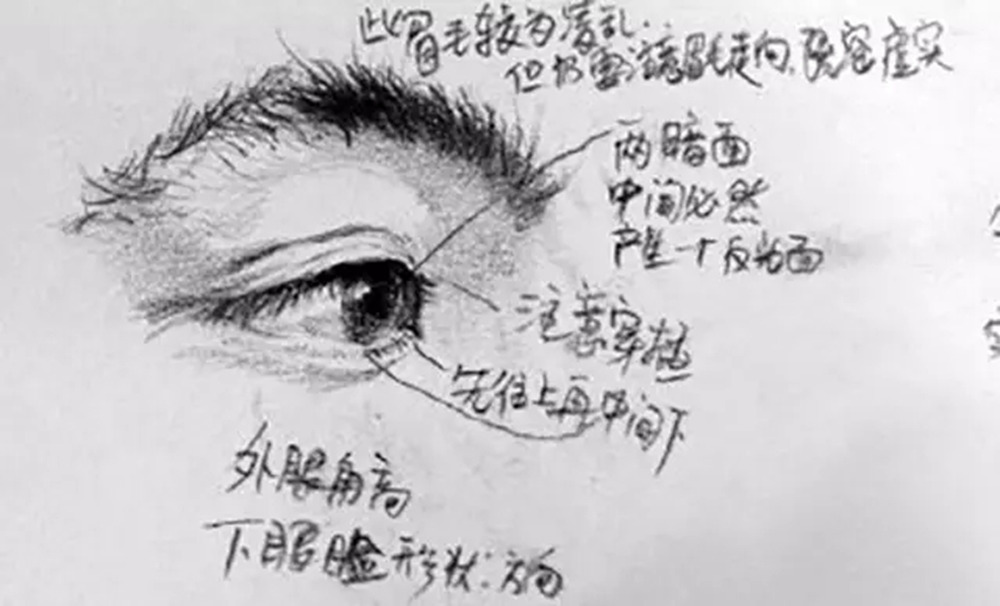 此眉毛较为凌乱.
但仍需注意眉毛走向、疏密虚实
两暗面
中间必然
产生一个反光面
注意穿插
先往上再中间下
外眼角高
下眼睑形状.方向